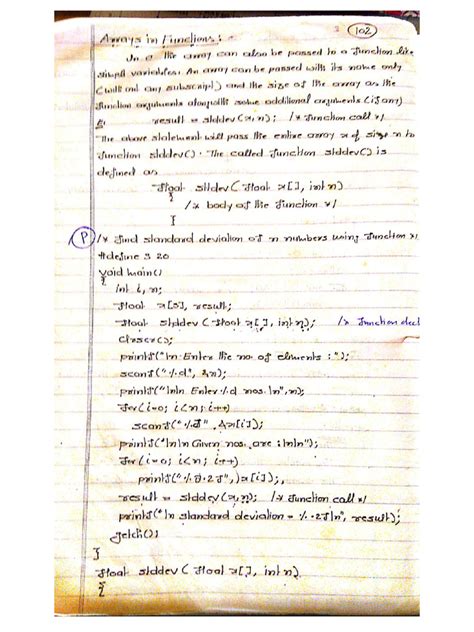 102
Arrays in Functions : -
In a the array can also be passed to a function like
simple variables. An array can be passed with its name only
(with out any subscript) and the size of the array as the
function arguments alongwith some additional arguments (if any)
result = stddev(x, n); /* function call */
The above statement will pass the entire array x of size n to
function stddev(). The called function stddev() is
defined as
float stddev( float x[], int n)
{ /* body of the function */
}
P /* find standard deviation of n numbers using function */
#define S 20
void main()
{
int i, n;
float x[S], result;
float stddev ( float x[], int n); /* function decl
clrscr();
printf("\n Enter the no. of elments : ");
scanf("%d", &n);
printf("\n\n Enter %d nos. \n", n);
for(i=0; i<n; i++)
scanf("%f", &x[i]);
printf("\n\n Given nos. are : \n\n");
for(i=0; i<n; i++)
printf("%8.2f", x[i]);
result = stddev(x, n); /* function call */
printf("\n standard deviation = %.2f\n", result);
getch();
}
float stddev ( float x[], int n)
{